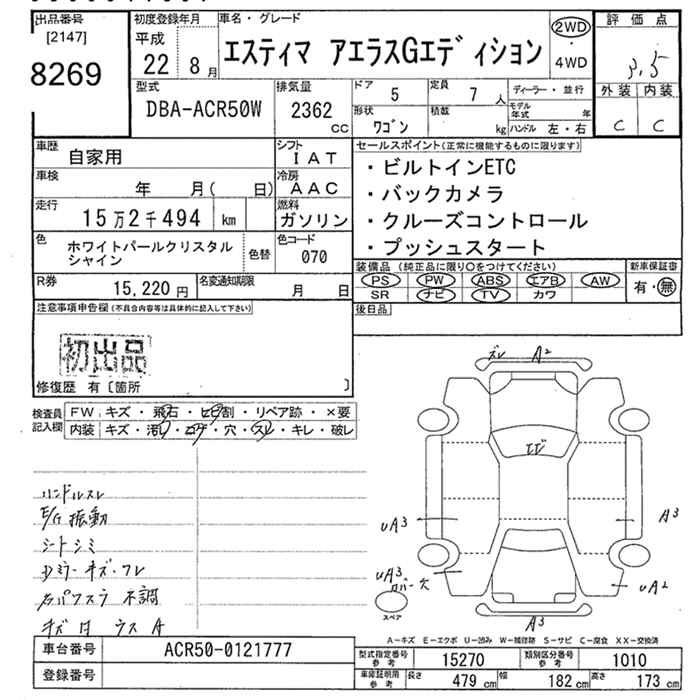 出品番号
[2147]
8269
初度登録年月
平成
22 8月
車名・グレード
エスティマ アエラスGエディション
2WD
・
4WD
評価点
3.5
外装 内装
C C
型式
DBA-ACR50W
排気量
2362
CC
ドア 5
定員 7人
形状 ワゴン
積載 kg
ディーラー・並行
モデル年式 年
ハンドル 左・右
車歴 自家用
シフト IAT
車検 年 月( 日)
冷房 AAC
走行 15万2千494 km
燃料 ガソリン
色 ホワイトパールクリスタル
シャイン
色替
色コード 070
R券 15,220円
名変通知期限 月 日
セールスポイント(正常に機能するものに限ります)
・ビルトインETC
・バックカメラ
・クルーズコントロール
・プッシュスタート
装備品(純正品に限り○をつけてください)
PS PW ABS エアB AW
SR ナビ TV カワ
新車保証書
有・無
後日品
注意事項申告欄(不具合内容等は具体的に記入して下さい)
初出品
修復歴 有〔箇所 〕
検査員
記入欄
FW キズ・飛石・ヒビ割・リペア跡・×要
内装 キズ・汚レ・コゲ・穴・スレ・キレ・破レ
ハンドルスレ
E/G振動
シートシミ
Dミラーキズ・フレ
右パワスラ 不調
キズ凹 ウス A
ズレ A2
エビ
UA3
A3
UA3
カバー欠
UA2
A3
スペア
A-キズ E-エクボ U-凹み W-補修跡 S-サビ C-腐食 XX-交換済
車台番号 ACR50-0121777
登録番号
型式指定番号
参考 15270
類別区分番号
参考 1010
車庫証明用
参考 長さ 479 cm 幅 182 cm 高さ 173 cm